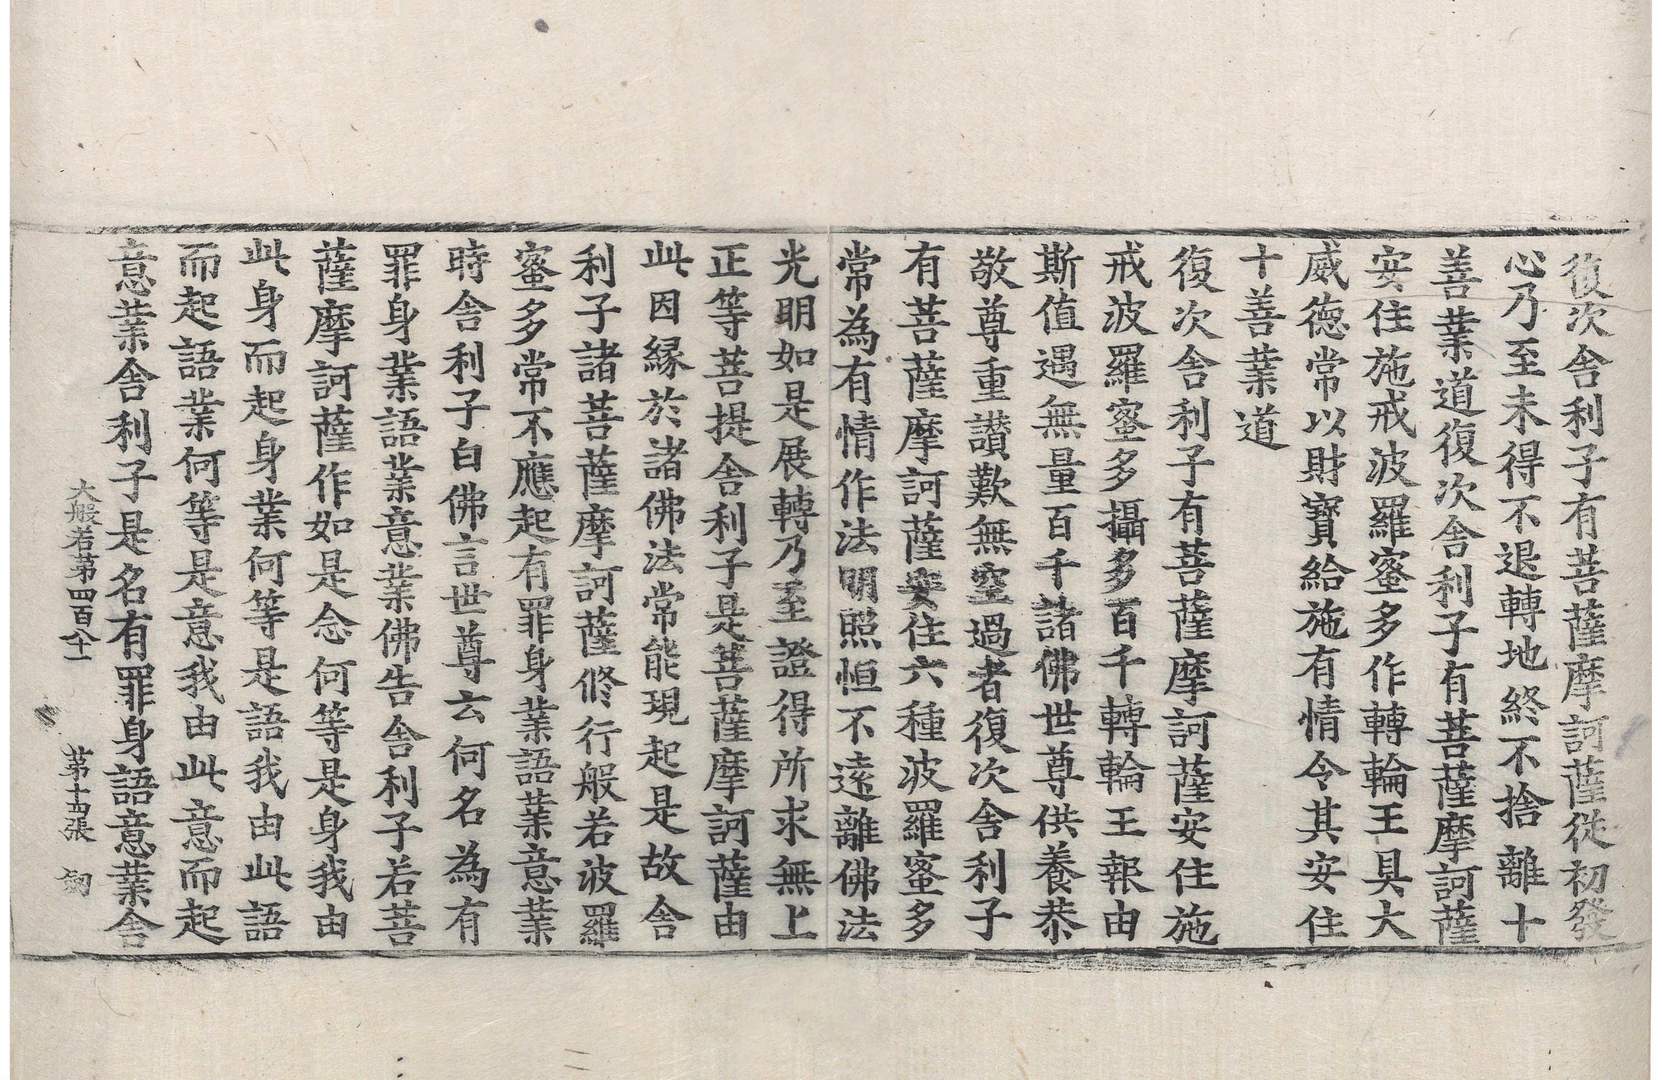 復次舍利子有菩薩摩訶薩從初發
心乃至未得不退轉地終不捨離十
善業道復次舍利子有菩薩摩訶薩
安住施戒波羅蜜多作轉輪王具大
威德常以財寶給施有情令其安住
十善業道
復次舍利子有菩薩摩訶薩安住施
戒波羅蜜多攝多百千轉輪王報由
斯值遇無量百千諸佛世尊供養恭
敬尊重讃歎無空過者復次舍利子
有菩薩摩訶薩安住六種波羅蜜多
常為有情作法明照恒不遠離佛法
光明如是展轉乃至證得所求無上
正等菩提舍利子是菩薩摩訶薩由
此因縁於諸佛法常能現起是故舍
利子諸菩薩摩訶薩修行般若波羅
蜜多常不應起有罪身業語業意業
時舍利子白佛言世尊云何名為有
罪身業語業意業佛告舍利子若菩
薩摩訶薩作如是念何等是身我由
此身而起身業何等是語我由此語
而起語業何等是意我由此意而起
意業舍利子是名有罪身語意業舍
大般若第四百八十一 第十四張